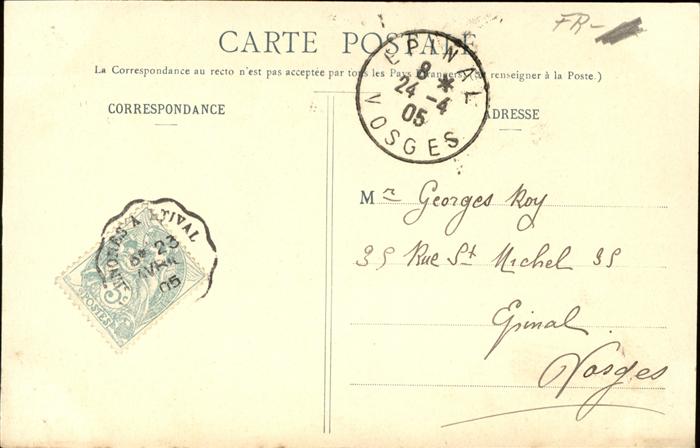 FR-
CARTE POSTALE
La Correspondance au recto n'est pas acceptée par tous les Pays Etrangers (Se renseigner à la Poste.)
CORRESPONDANCE
ADRESSE
EPINAL
8 *
24 -4
05
VOSGES
Mr Georges Roy
35 Rue St Michel 35
Epinal
Vosges
A ETIVAL
23
AVRIL
05
5
POSTES